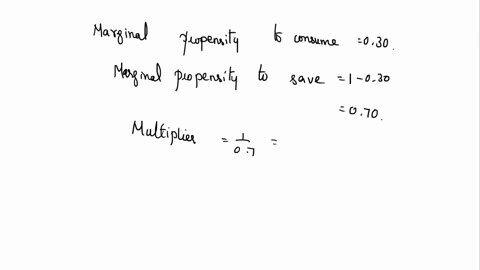 Marginal propensity to consume = 0.30.
Marginal propensity to save = 1 - 0.30
= 0.70.
Multiplier = 1/0.7 =